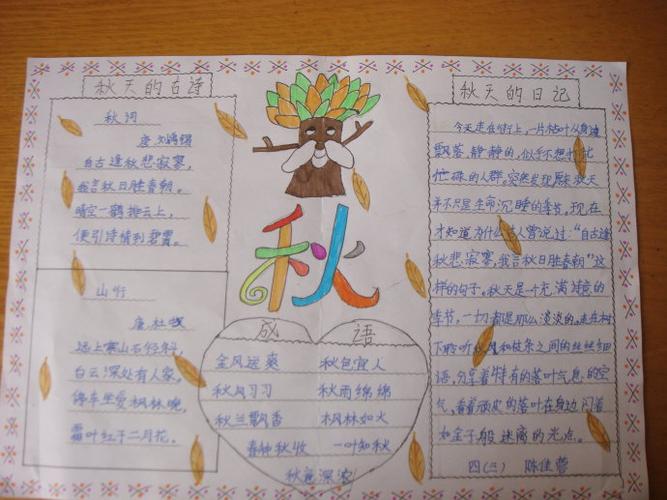 秋天的古诗
秋词
唐 刘禹锡
自古逢秋悲寂寥，
我言秋日胜春朝。
晴空一鹤排云上，
便引诗情到碧霄。
山行
唐.杜牧
远上寒山石径斜，
白云深处有人家，
停车坐爱枫林晚，
霜叶红于二月花。
秋
成语
金风送爽 秋色宜人
秋风习习 秋雨绵绵
秋兰飘香 枫林如火
春种秋收 一叶知秋
秋意深浓
秋天的日记
今天走在街上，一片枯叶从身边
飘落，静静的，似乎不想打扰
忙碌的人群。突然发现原来秋天
并不只是生命沉睡的季节。现在
才知道为什么诗人会说过："自古逢
秋悲寂寥，我言秋日胜春朝"这
样的句子。秋天是一个充满诗意的
季节，一切都是那么淡淡的。走在树
下聆听风和枝条之间的丝丝细
语，分享着特有的落叶气息的空
气，看着顽皮的落叶在身边闪着
如金子般迷离的光点。
四(三) 陈佳蓉